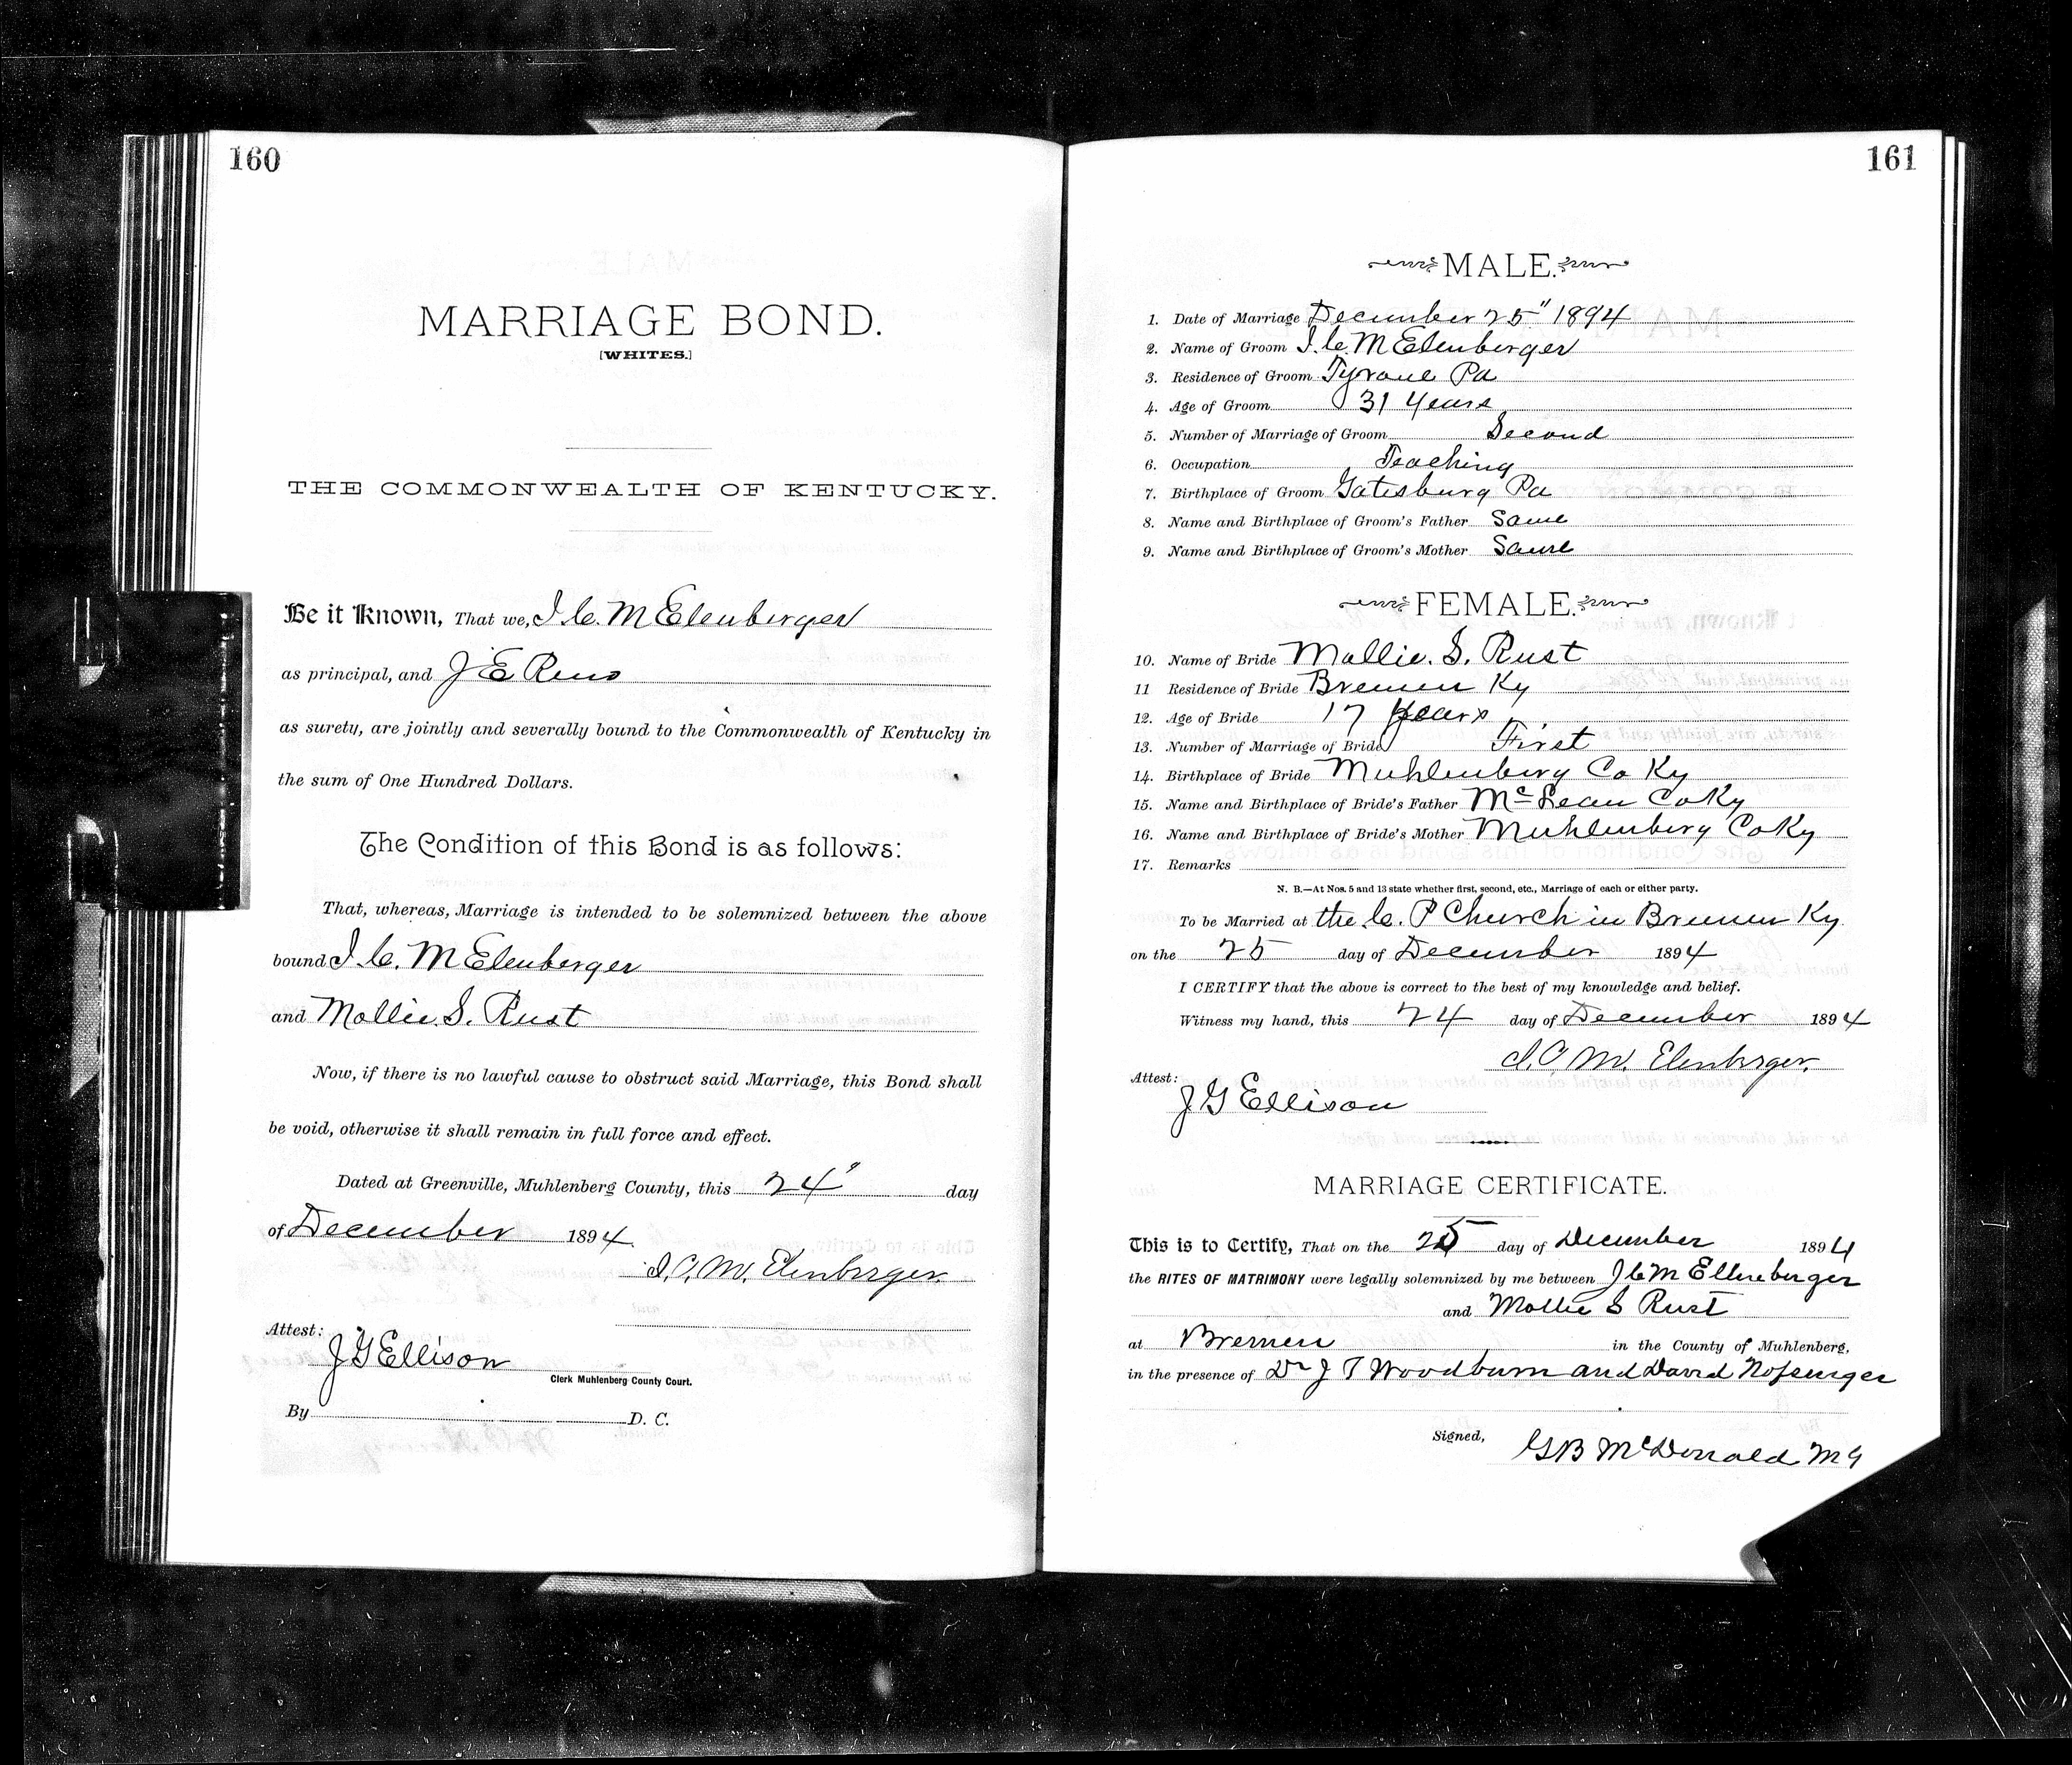 160
MARRIAGE BOND.
[WHITES.]
THE COMMONWEALTH OF KENTUCKY.
Be it Known, That we, I. C. M Elenberger
as principal, and J E Reno
as surety, are jointly and severally bound to the Commonwealth of Kentucky in
the sum of One Hundred Dollars.
The Condition of this Bond is as follows:
That, whereas, Marriage is intended to be solemnized between the above
bound I. C. M Elenberger
and Mollie S. Rust
Now, if there is no lawful cause to obstruct said Marriage, this Bond shall
be void, otherwise it shall remain in full force and effect.
Dated at Greenville, Muhlenberg County, this 24" day
of December 1894
I. C. M. Elenberger
Attest:
J G Ellison
Clerk Muhlenberg County Court.
By D. C.
161
MALE.
1. Date of Marriage December 25" 1894
2. Name of Groom I. C. M Elenberger
3. Residence of Groom Tyrone Pa
4. Age of Groom 31 Years
5. Number of Marriage of Groom Second
6. Occupation Teaching
7. Birthplace of Groom Gatesburg Pa
8. Name and Birthplace of Groom's Father Same
9. Name and Birthplace of Groom's Mother Same
FEMALE.
10. Name of Bride Mollie. S. Rust
11 Residence of Bride Bremen Ky
12. Age of Bride 17 Years
13. Number of Marriage of Bride First
14. Birthplace of Bride Muhlenberg Co Ky
15. Name and Birthplace of Bride's Father McLean Co Ky
16. Name and Birthplace of Bride's Mother Muhlenberg Co Ky
17. Remarks
N. B.—At Nos. 5 and 13 state whether first, second, etc., Marriage of each or either party.
To be Married at the C. P Church in Bremen Ky.
on the 25 day of December 1894
I CERTIFY that the above is correct to the best of my knowledge and belief.
Witness my hand, this 24 day of December 1894
I. C. M. Elenberger.
Attest:
J G Ellison
MARRIAGE CERTIFICATE.
This is to Certify, That on the 25 day of December 1894
the RITES OF MATRIMONY were legally solemnized by me between I C M Ellenberger
and Mollie S Rust
at Bremen in the County of Muhlenberg,
in the presence of Dr J T Woodburn and David Nofsinger
Signed, G B McDonald M G